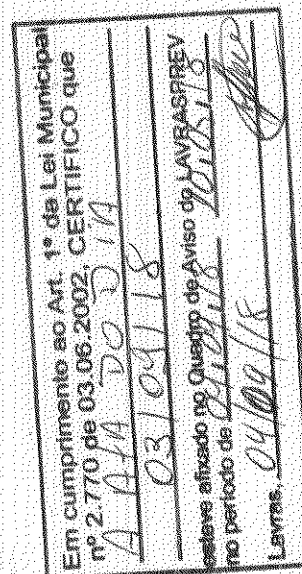 Em cumprimento ao Art. 1º da Lei Municipal
nº 2.770 de 03.06.2002, CERTIFICO que
A ATA DO DIA
03/09/18
esteve afixado no Quadro de Aviso do LAVRASPREV
no período de
Lavras, 04/09/18